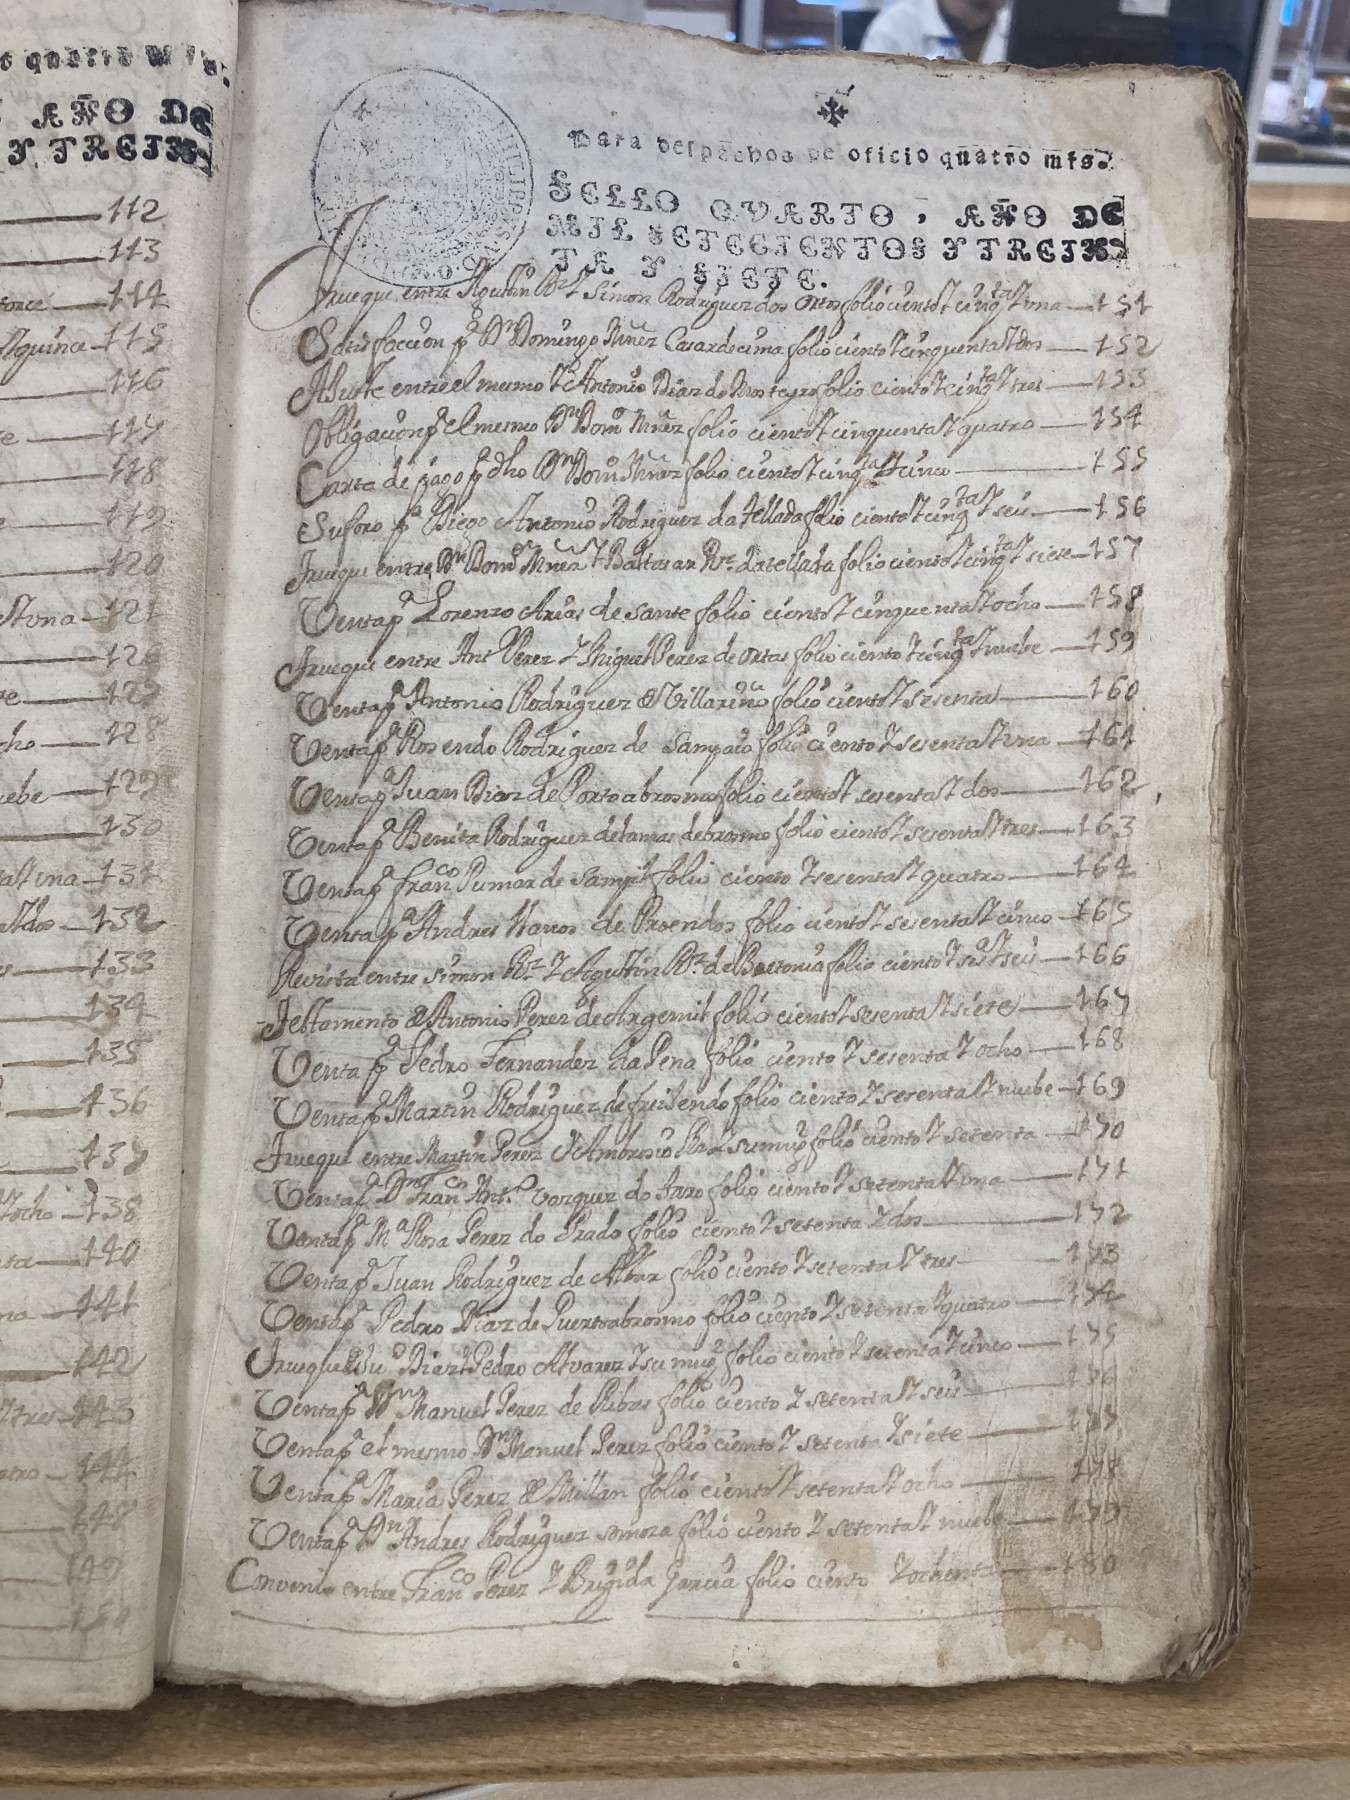 o quatro mrs.
AÑO DE
Y TREIN
112
113
torce 114
y quince 115
116
117
118
119
120
y una 121
126
127
cho 128
uebe 129
130
ta y una 131
y dos 132
133
134
135
136
137
y ocho 138
nta 140
na 141
142
y tres 143
atro 144
148
149
150
Para despachos de oficio quatro mrs.
SELLO QVARTO, AÑO DE
MIL SETECIENTOS Y TREIN
TA Y SIETE.
Trueque entre Agustin Rz y Simon Rodriguez dos Ortos folio ciento y cinqta y una 151
Satisfaccion pa Dn Domingo Nuñez Casardecima folio ciento y cinquenta y dos 152
Ajuste entre el mesmo y Antonio Diaz do Monteyro folio ciento y cinqta y tres 153
Obligacion pa el mesmo Dn Domo Nuñez folio ciento y cinquenta y quatro 154
Carta de pago pa dho Dn Domo Nuñez folio ciento y cinqta y cinco 155
Suforo pa Diego Antonio Rodriguez da tellada folio ciento y cinqta y seis 156
Trueque entre Dn Domo Nuñez y Baltasar Rz da tellada folio ciento y cinqta y siete 157
Venta pa Lorenzo Arias de Sante folio ciento y cinquenta y ocho 158
Trueque entre Anto Perez y Miguel Perez de Ortas folio ciento y cinqta y nuebe 159
Venta pa Antonio Rodriguez de Villarino folio ciento y sesenta 160
Venta pa Rosendo Rodriguez de Sampaio folio ciento y sesenta y una 161
Venta pa Juan Diaz de Porto abrosmo folio ciento y sesenta y dos 162
Venta pa Benita Rodriguez delamas debrosmo folio ciento y sesenta y tres 163
Venta pa Franco Pumar de Sampil folio ciento y sesenta y quatro 164
Venta pa Andres Nanos de Proendos folio ciento y sesenta y cinco 165
Revista entre Simon Rz y Agustin Rz de Bretonia folio ciento y sesta y seis 166
Testamento de Antonio Perez de Argemil folio ciento y sesenta y siete 167
Venta pa Pedro Fernandez da Pena folio ciento y sesenta y ocho 168
Venta pa Martin Rodriguez de freisendo folio ciento y sesenta y nuebe 169
Trueque entre Martin Perez y Ambrosio Rz y su mug folio ciento y setenta 170
Venta pa Dn Franco Anto Vazquez do Arro folio ciento y setenta y una 171
Venta pa Ma Rosa Perez do Prado folio ciento y setenta y dos 172
Venta pa Juan Rodriguez de Albar folio ciento y setenta y tres 173
Venta pa Pedro Diaz de Puertoabrosmo folio ciento y setenta y quatro 174
Trueque Diaz y Pedro Alvarez y su mugr folio ciento y setenta y cinco 175
Venta pa Dn Manuel Perez de Ribas folio ciento y setenta y seis 176
Venta pa el mesmo Dn Manuel Perez folio ciento y setenta y siete 177
Venta pa Maria Perez de Millan folio ciento y setenta y ocho 178
Venta pa Dn Andres Rodriguez somoza folio ciento y setenta y nuebe 179
Convenio entre Franco Perez y Brigida Garcia folio ciento y ochenta 180